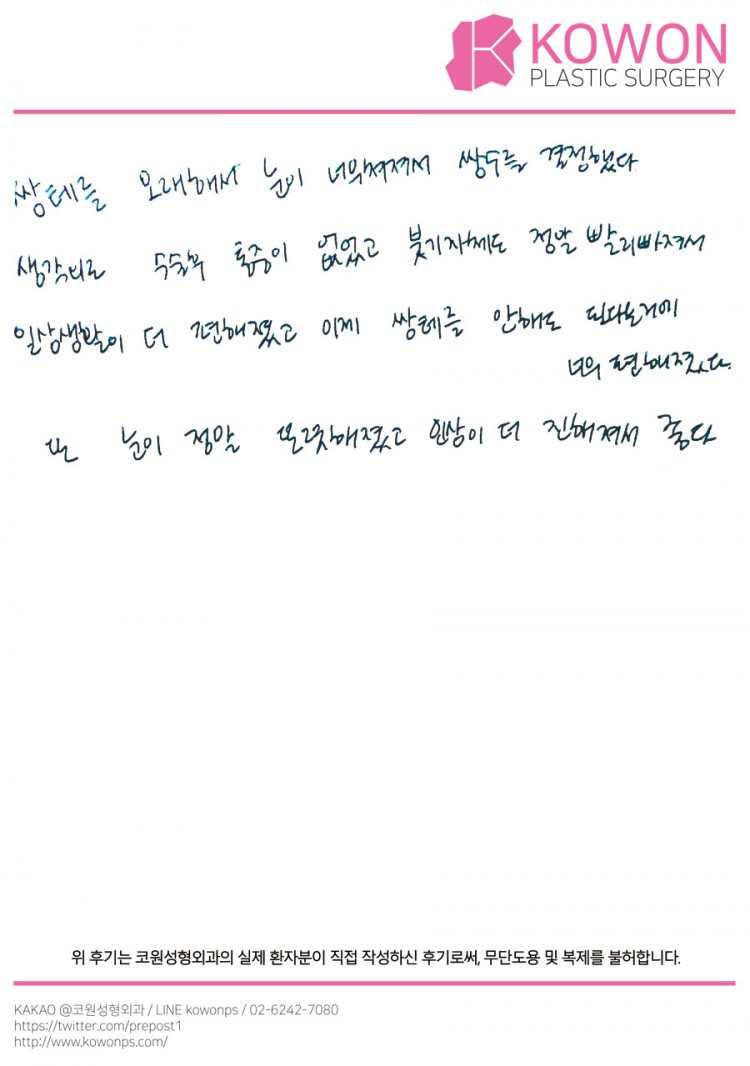 KOWON
PLASTIC SURGERY
쌍테를 오래해서 눈이 너무쳐져서 쌍수를 결정했다
생각외로 수술후 통증이 없었고 붓기자체도 정말 빨리빠져서
일상생활이 더 편해졌고 이제 쌍테를 안해도 된다는거에
너무 편해졌다.
또 눈이 정말 또렷해졌고 인상이 더 진해져서 좋다
위 후기는 코원성형외과의 실제 환자분이 직접 작성하신 후기로써, 무단도용 및 복제를 불허합니다.
KAKAO @코원성형외과 / LINE kowonps / 02-6242-7080
https://twitter.com/prepost1
http://www.kowonps.com/